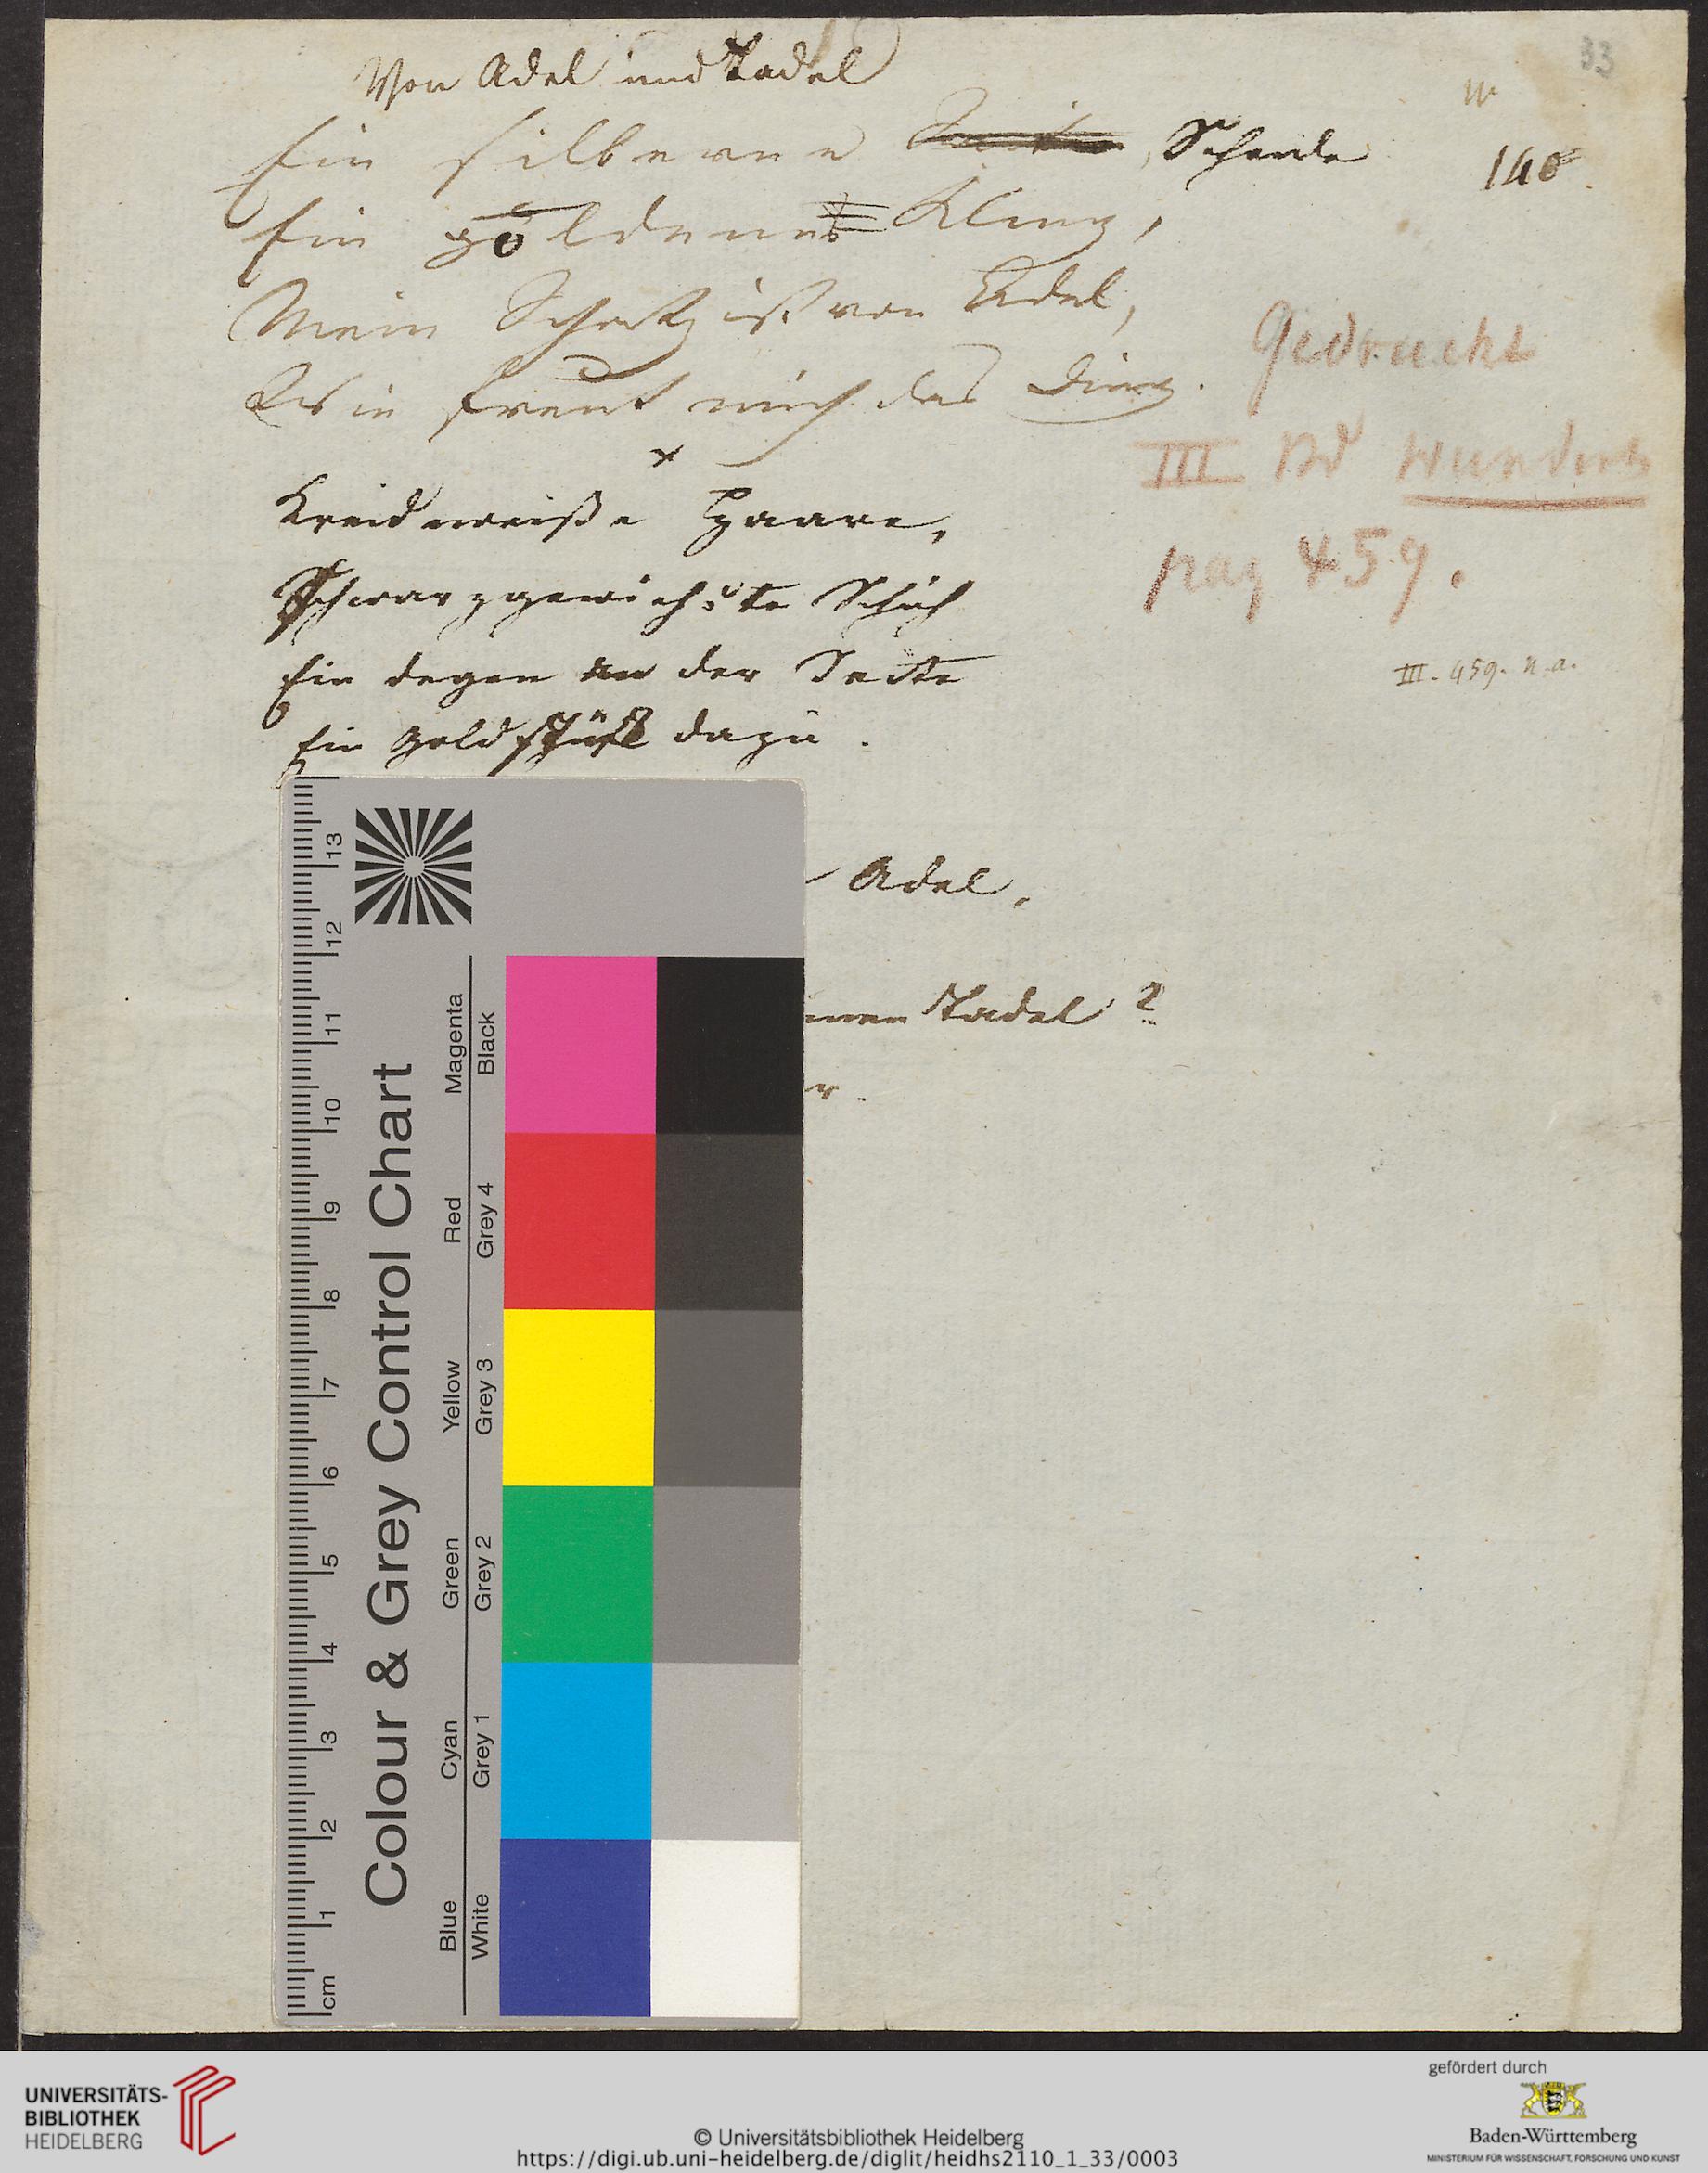 33
Von Adel und Tadel
Ein silberne Scheide
140
Ein göldene Kling,
Mein Schatz ist von Adel,
Wie freut mich das Ding.
Gedruckt
III Bd Wunderh
pag 459.
Kreidweiße Haare,
Schwarzgewichste Schuh
Ein degen an der Seite
III. 459. u. a.
Ein Goldstück dazu.
Adel,
Tadel?
Colour & Grey Control Chart
Magenta Red Yellow Green Cyan Blue
Black Grey 4 Grey 3 Grey 2 Grey 1 White
13 12 11 10 9 8 7 6 5 4 3 2 1 cm
UNIVERSITÄTS-
BIBLIOTHEK
HEIDELBERG
© Universitätsbibliothek Heidelberg
https://digi.ub.uni-heidelberg.de/diglit/heidhs2110_1_33/0003
gefördert durch
Baden-Württemberg
MINISTERIUM FÜR WISSENSCHAFT, FORSCHUNG UND KUNST